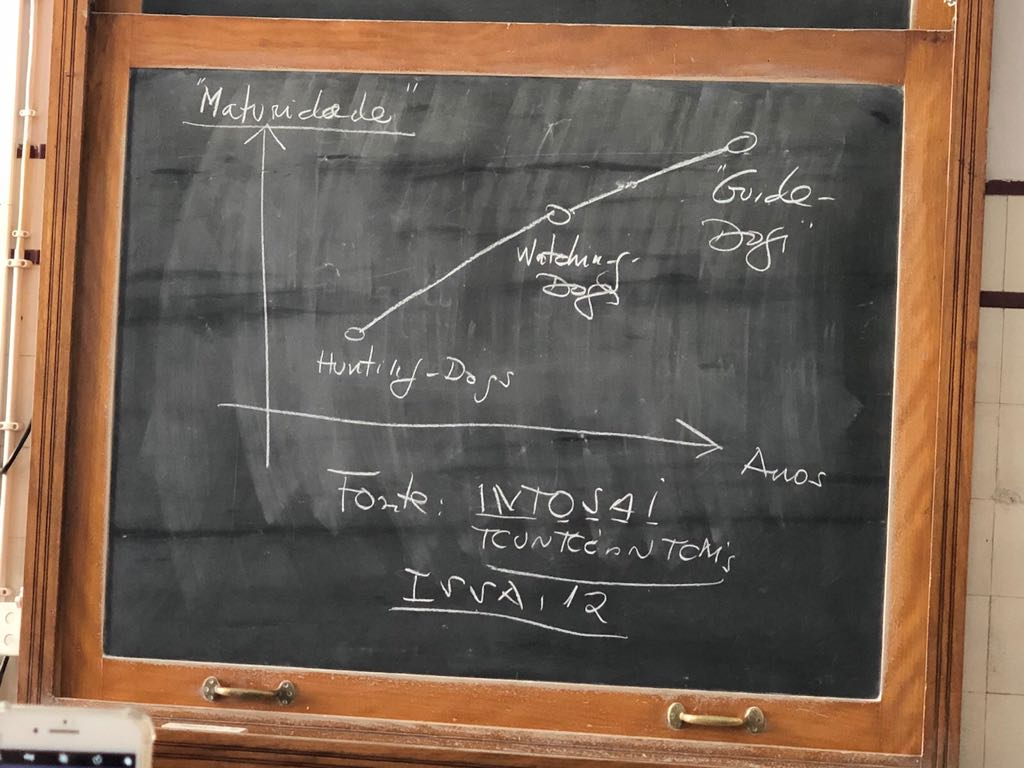 "Maturidade"
"Guide-
Dogs"
Watching-
Dogs
Hunting-Dogs
Anos
Fonte: INTOSAI
ISSAI, 12